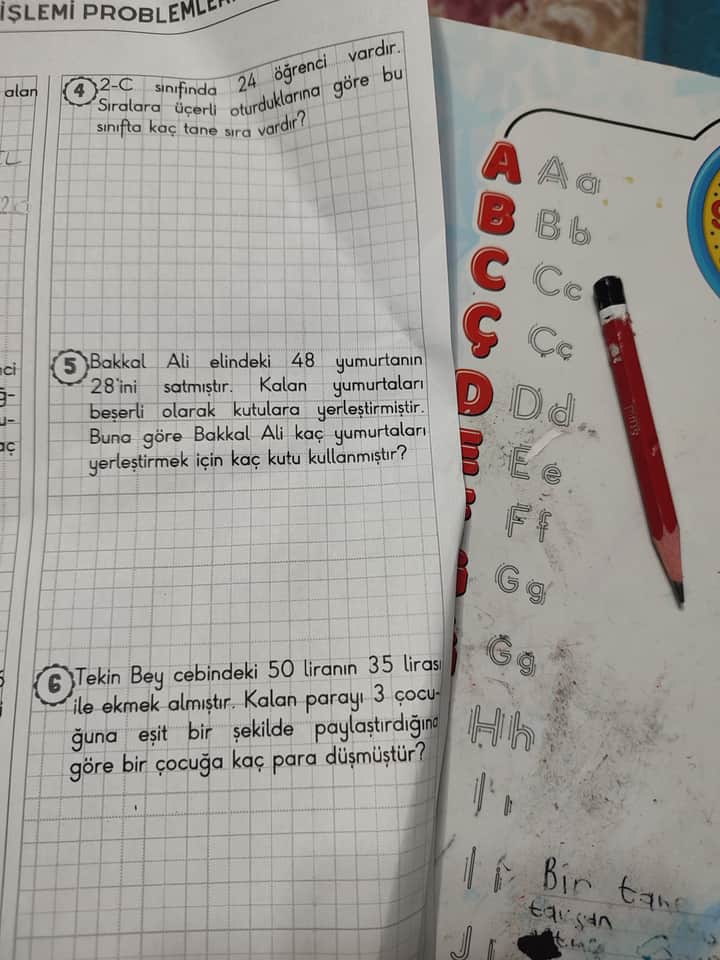 İŞLEMİ PROBLEMLER
alan
4 2-C sınıfında 24 öğrenci vardır.
Sıralara üçerli oturduklarına göre bu
sınıfta kaç tane sıra vardır?
5 Bakkal Ali elindeki 48 yumurtanın
28'ini satmıştır. Kalan yumurtaları
beşerli olarak kutulara yerleştirmiştir.
Buna göre Bakkal Ali kaç yumurtaları
yerleştirmek için kaç kutu kullanmıştır?
6 Tekin Bey cebindeki 50 liranın 35 lirası
ile ekmek almıştır. Kalan parayı 3 çocu-
ğuna eşit bir şekilde paylaştırdığına
göre bir çocuğa kaç para düşmüştür?
A A a
B B b
C C c
Ç Ç ç
D D d
E e
F f
G g
Ğ ğ
H h
I ı
İ i
J
Bin tane
tavşan